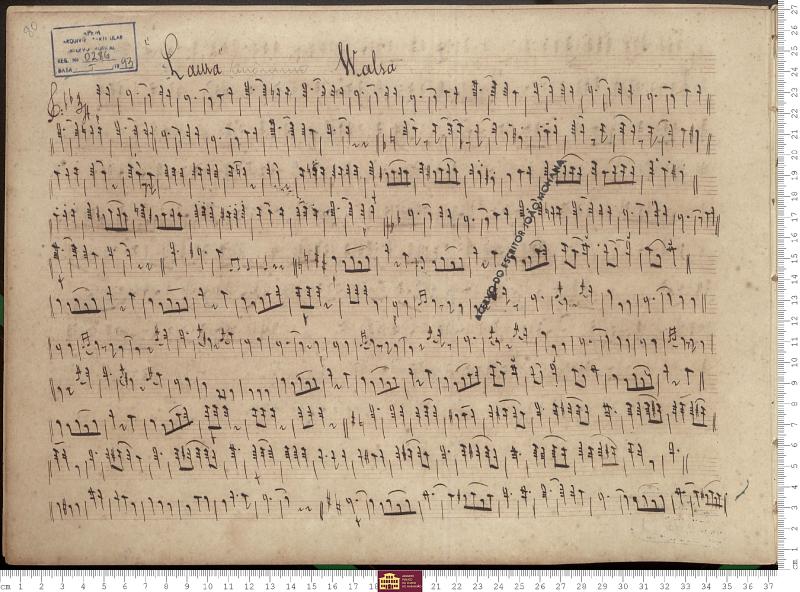 80
APEM
ARQUIVO PARTICULAR
ACERVO MUSICAL
REG. NO 0286
DATA / 5 / 1993
"Laura" Walsa
3/4
ACERVO DO ESCRITOR JOÃO MOHANA
cm 1 2 3 4 5 6 7 8 9 10 11 12 13 14 15 16 17 18 21 22 23 24 25 26 27 28 29 30 31 32 33 34 35 36 37
cm 1 2 3 4 5 6 7 8 9 10 11 12 13 14 15 16 17 18 19 20 21 22 23 24 25 26 27